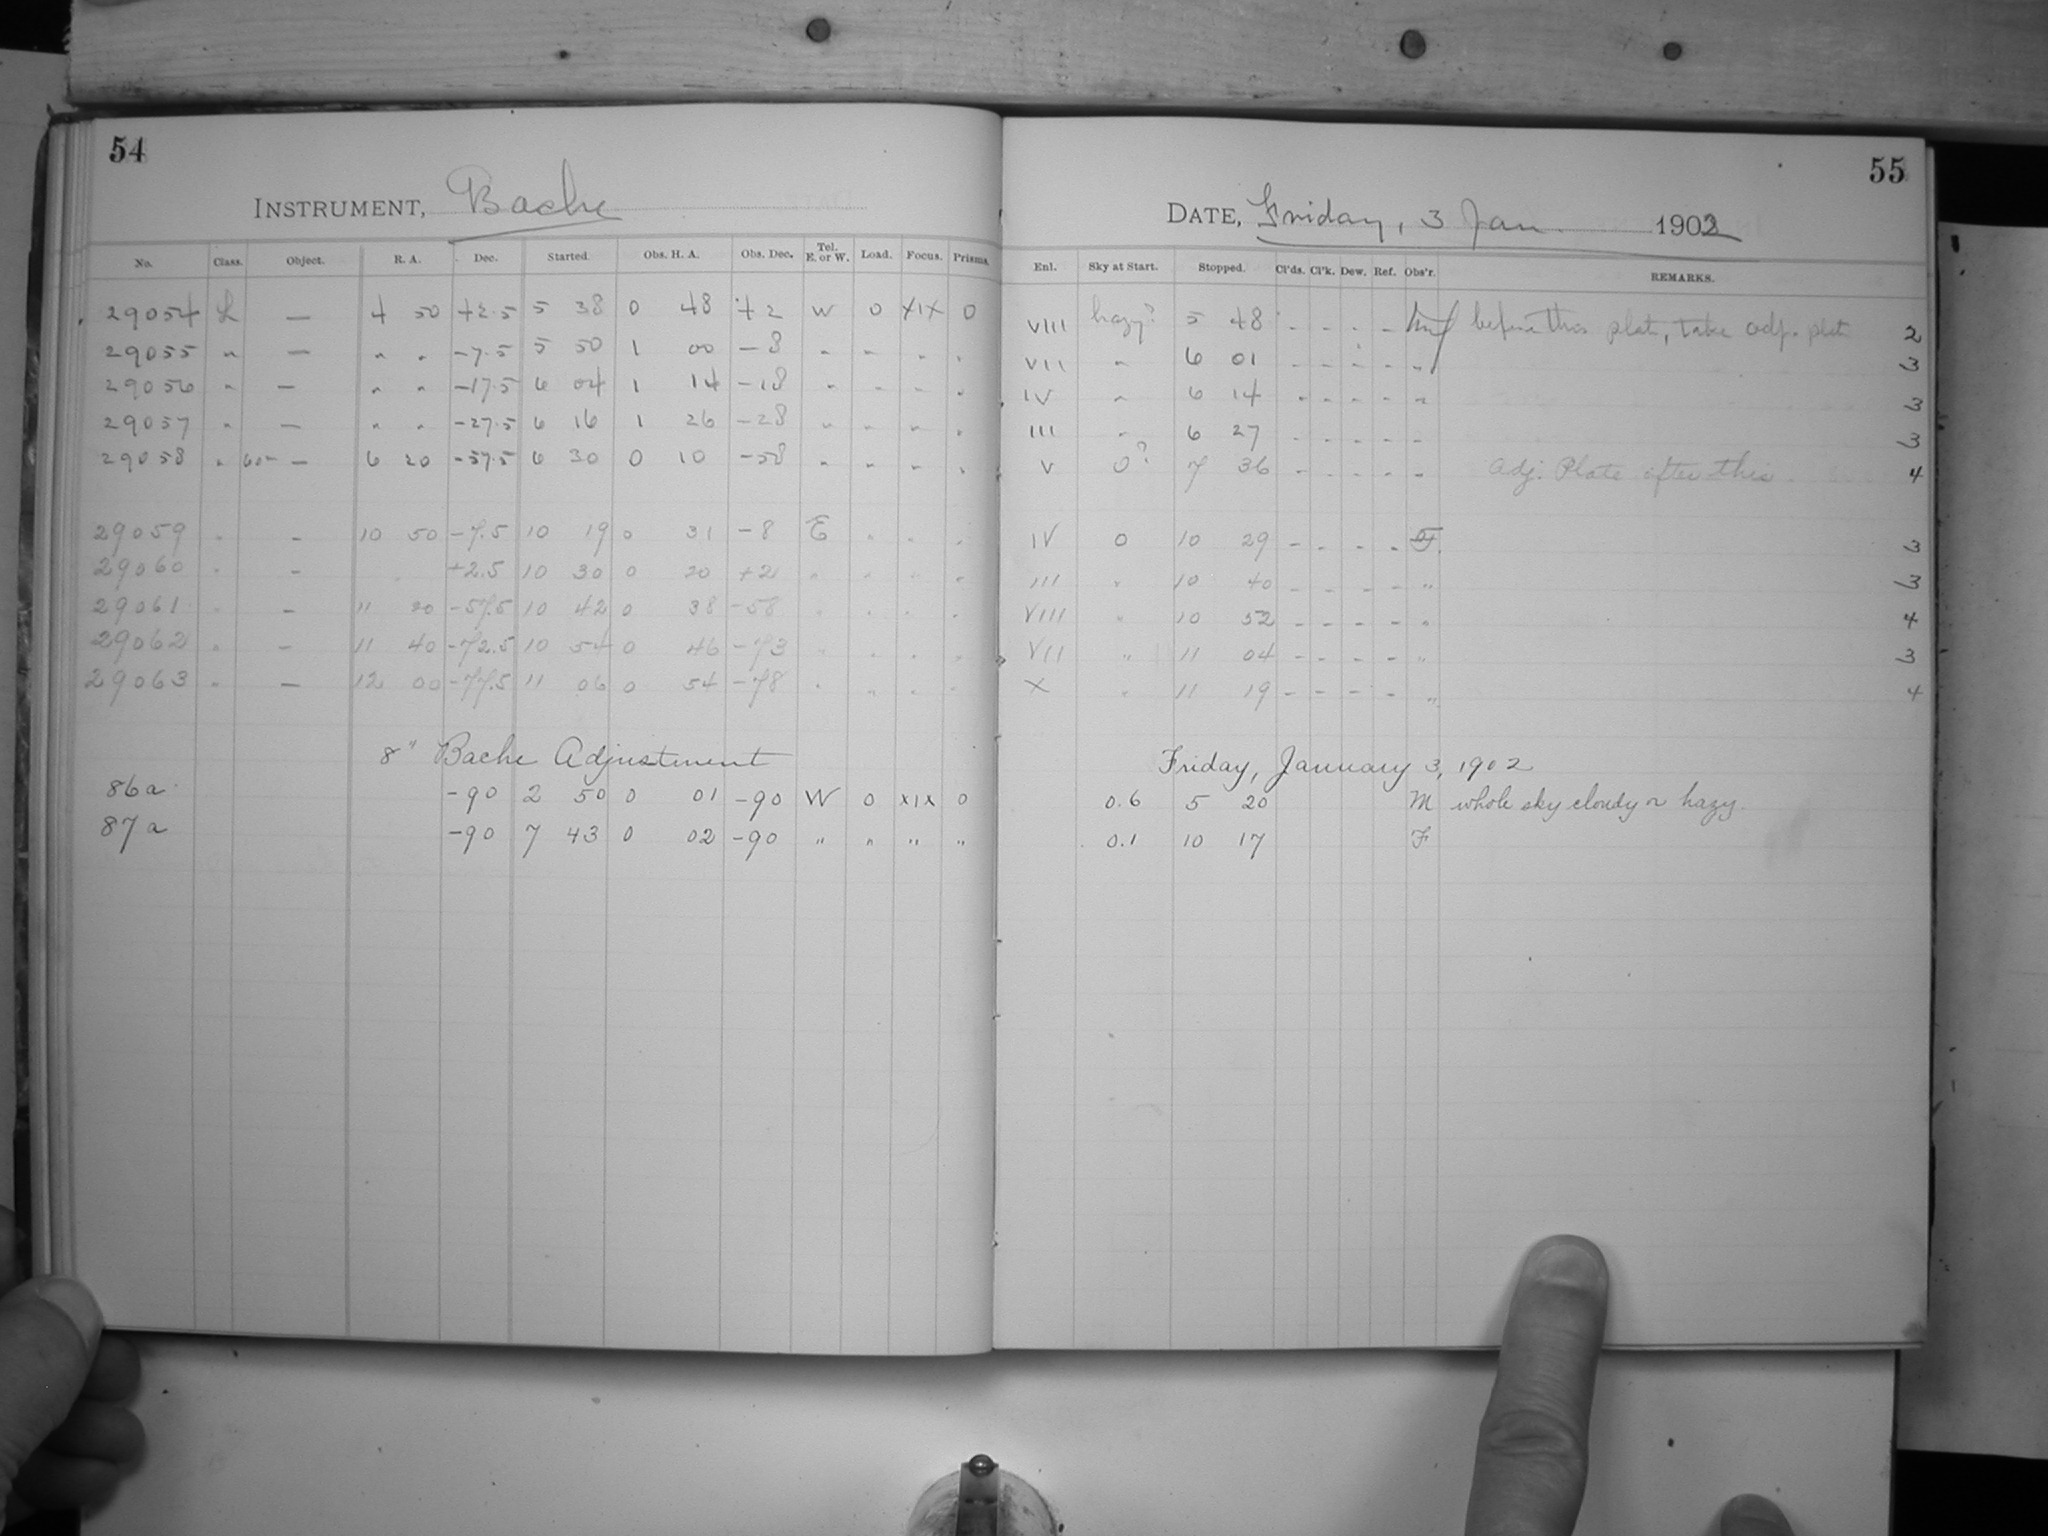 54
INSTRUMENT, Bache
No. Class. Object. R. A. Dec. Started. Obs. H. A. Obs. Dec. Tel. E. or W. Load. Focus. Prisms.
29054 L — 4 50 +2.5 5 38 0 48 +2 W 0 XIX 0
29055 " — " " -7.5 5 50 1 00 -8 " " " "
29056 " — " " -17.5 6 04 1 14 -18 " " " "
29057 " — " " -27.5 6 16 1 26 -28 " " " "
29058 " 60m — 6 20 -57.5 6 30 0 10 -58 " " " "
29059 " - 10 50 -7.5 10 19 0 31 -8 E " " "
29060 " - " +2.5 10 30 0 20 +2 " " " "
29061 " - 11 20 -57.5 10 42 0 38 -58 " " " "
29062 " - 11 40 -72.5 10 54 0 46 -73 " " " "
29063 " — 12 00 -77.5 11 06 0 54 -78 " " " "
8" Bache Adjustment
86a -90 2 50 0 01 -90 W 0 XIX 0
87a -90 7 43 0 02 -90 " " " "
55
DATE, Friday, 3 Jan. 1902
Enl. Sky at Start. Stopped. Cl'ds. Cl'k. Dew. Ref. Obs'r. REMARKS.
VIII hazy? 5 48 - - - - before this plate, take adj. plate 2
VII " 6 01 - - - - " 3
IV " 6 14 - - - - " 3
III " 6 27 - - - - - 3
V 0? 7 36 - - - - - Adj. Plate after this. 4
IV 0 10 29 - - - - F. 3
III " 10 40 - - - - " 3
VIII " 10 52 - - - - " 4
VII " 11 04 - - - - " 3
X " 11 19 - - - - " 4
Friday, January 3, 1902
0.6 5 20 M whole sky cloudy or hazy.
0.1 10 17 F